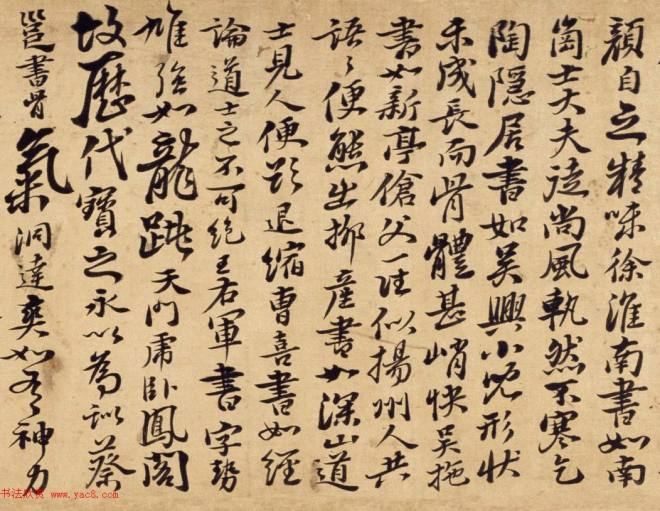 頗自乏精味徐淮南書如南
崗士大夫徒尚風軌然不寒乞
陶隱居書如吳興小兒形狀
未成長而骨體甚峭快吳拖
書如新亭傖父一往似揚州人共
語々便態出柳產書如深山道
士見人便欲退縮曹喜書如經
論道士言不可絕王右軍書字勢
雄強如龍跳天門虎臥鳳閣
故歷代寶之永以為訓蔡
邕書骨氣洞達爽如有神力
书法欣赏 www.yac8.com